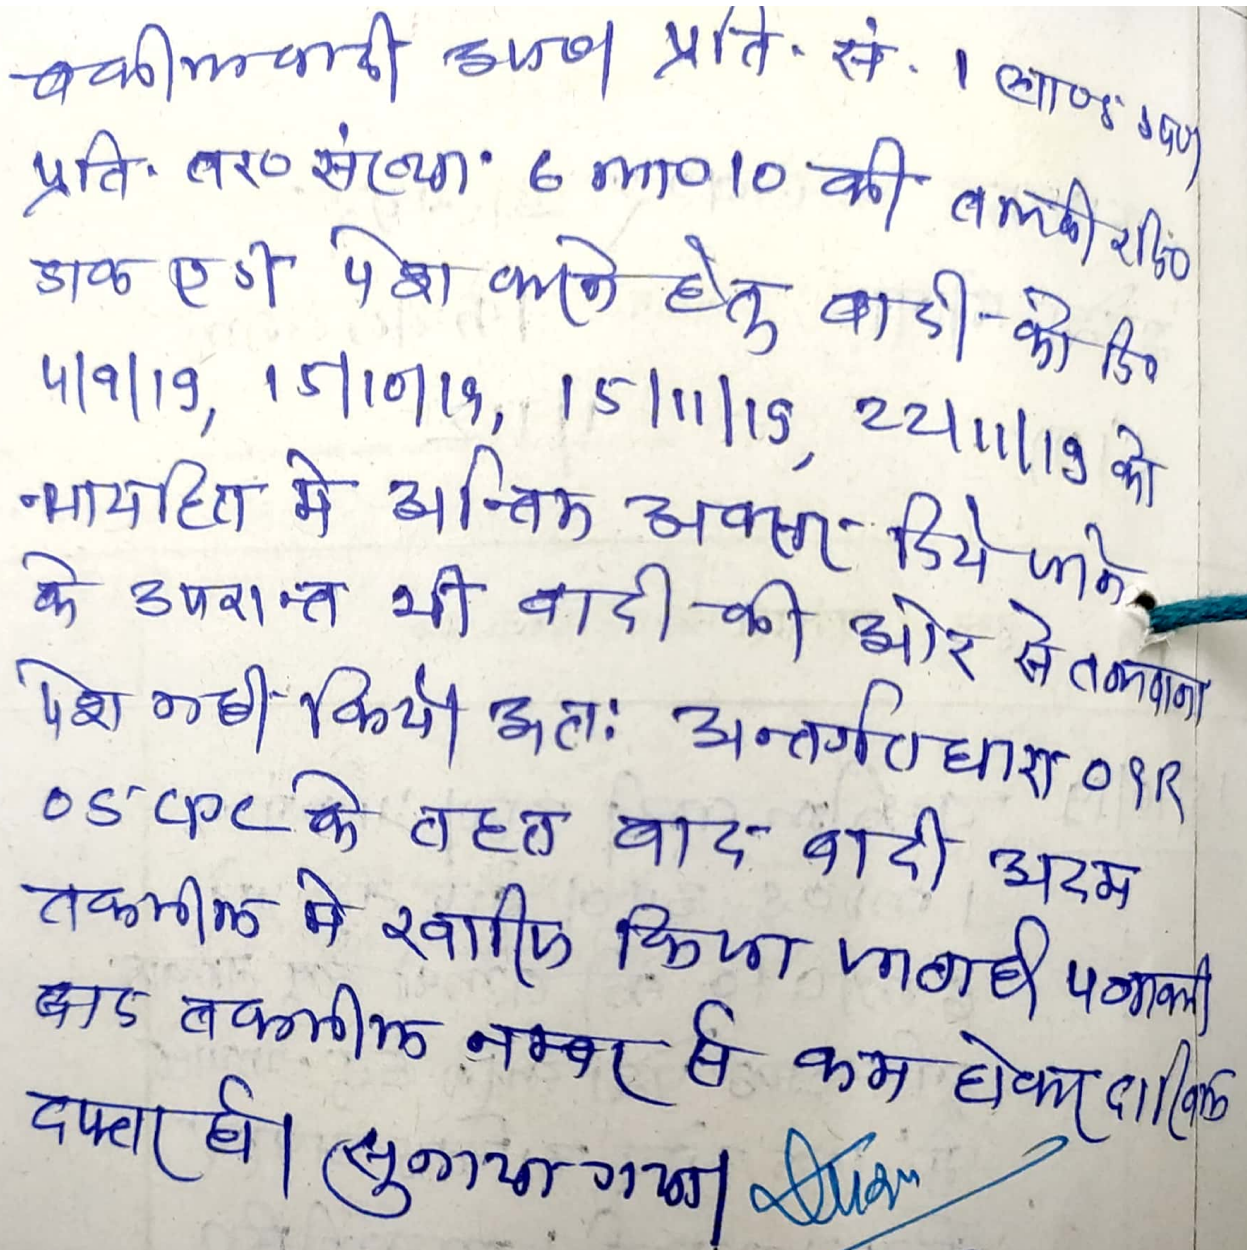 वकील वादी उप० प्रति. सं. 1
प्रति. सं० संख्या. 6 ता० 10 की तलबी रजि०
डाक एडी पेश करने हेतु वादी को दि०
4/9/19, 15/10/19, 15/11/19, 22/11/19 को
न्यायहित मे अन्तिम अवसर दिये जाने
के उपरान्त भी वादी की ओर से तलवाना
पेश नही किया। अतः अन्तर्गत धारा 09R
05 CPC के तहत वाद वादी अदम
तकमील मे खारिज किया जाता है पत्रावली
बाद तकमील नम्बर से कम होकर दाखिल
दफ्तर हो। सुनाया गया।